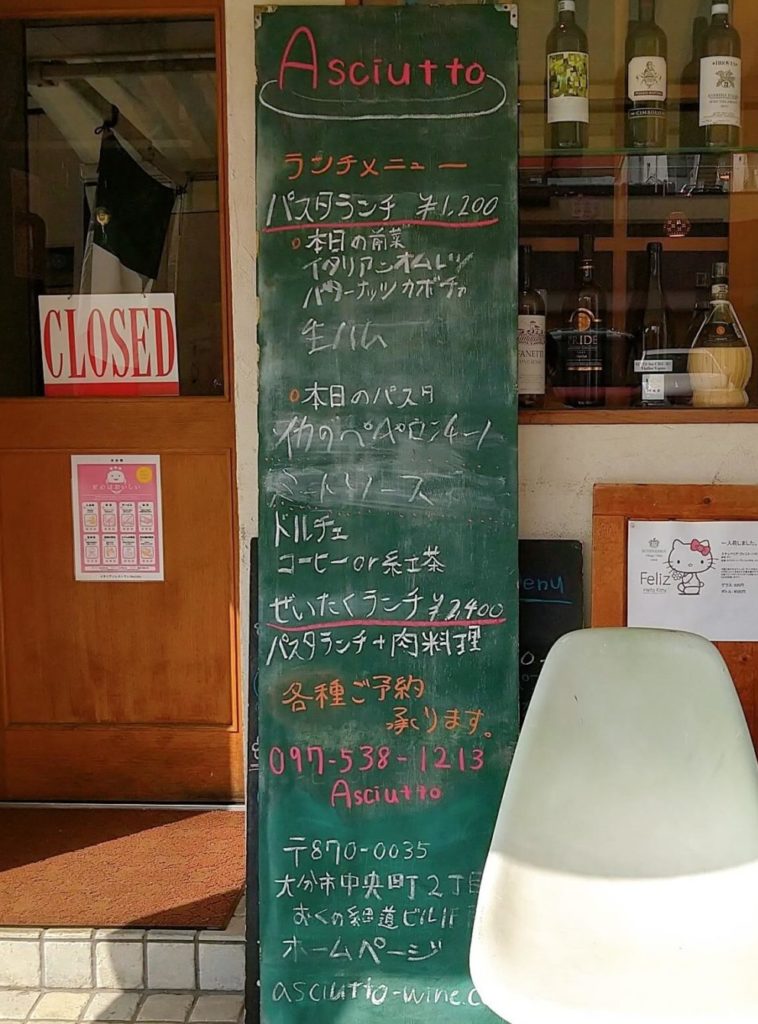 Asciutto
ランチメニュー
パスタランチ ¥1,200
本日の前菜
イタリアンオムレツ
バターナッツカボチャ
生ハム
本日のパスタ
イカのペペロンチーノ
ミートソース
ドルチェ
コーヒー or 紅茶
ぜいたくランチ ¥2,400
パスタランチ+肉料理
各種ご予約
承ります。
097-538-1213
Asciutto
〒870-0035
大分市中央町2丁目
おくの細道ビル1F
ホームページ
asciutto-wine.c
CLOSED
PRIDE
enu
一入荷しました。
Feliz
Hello Kitty